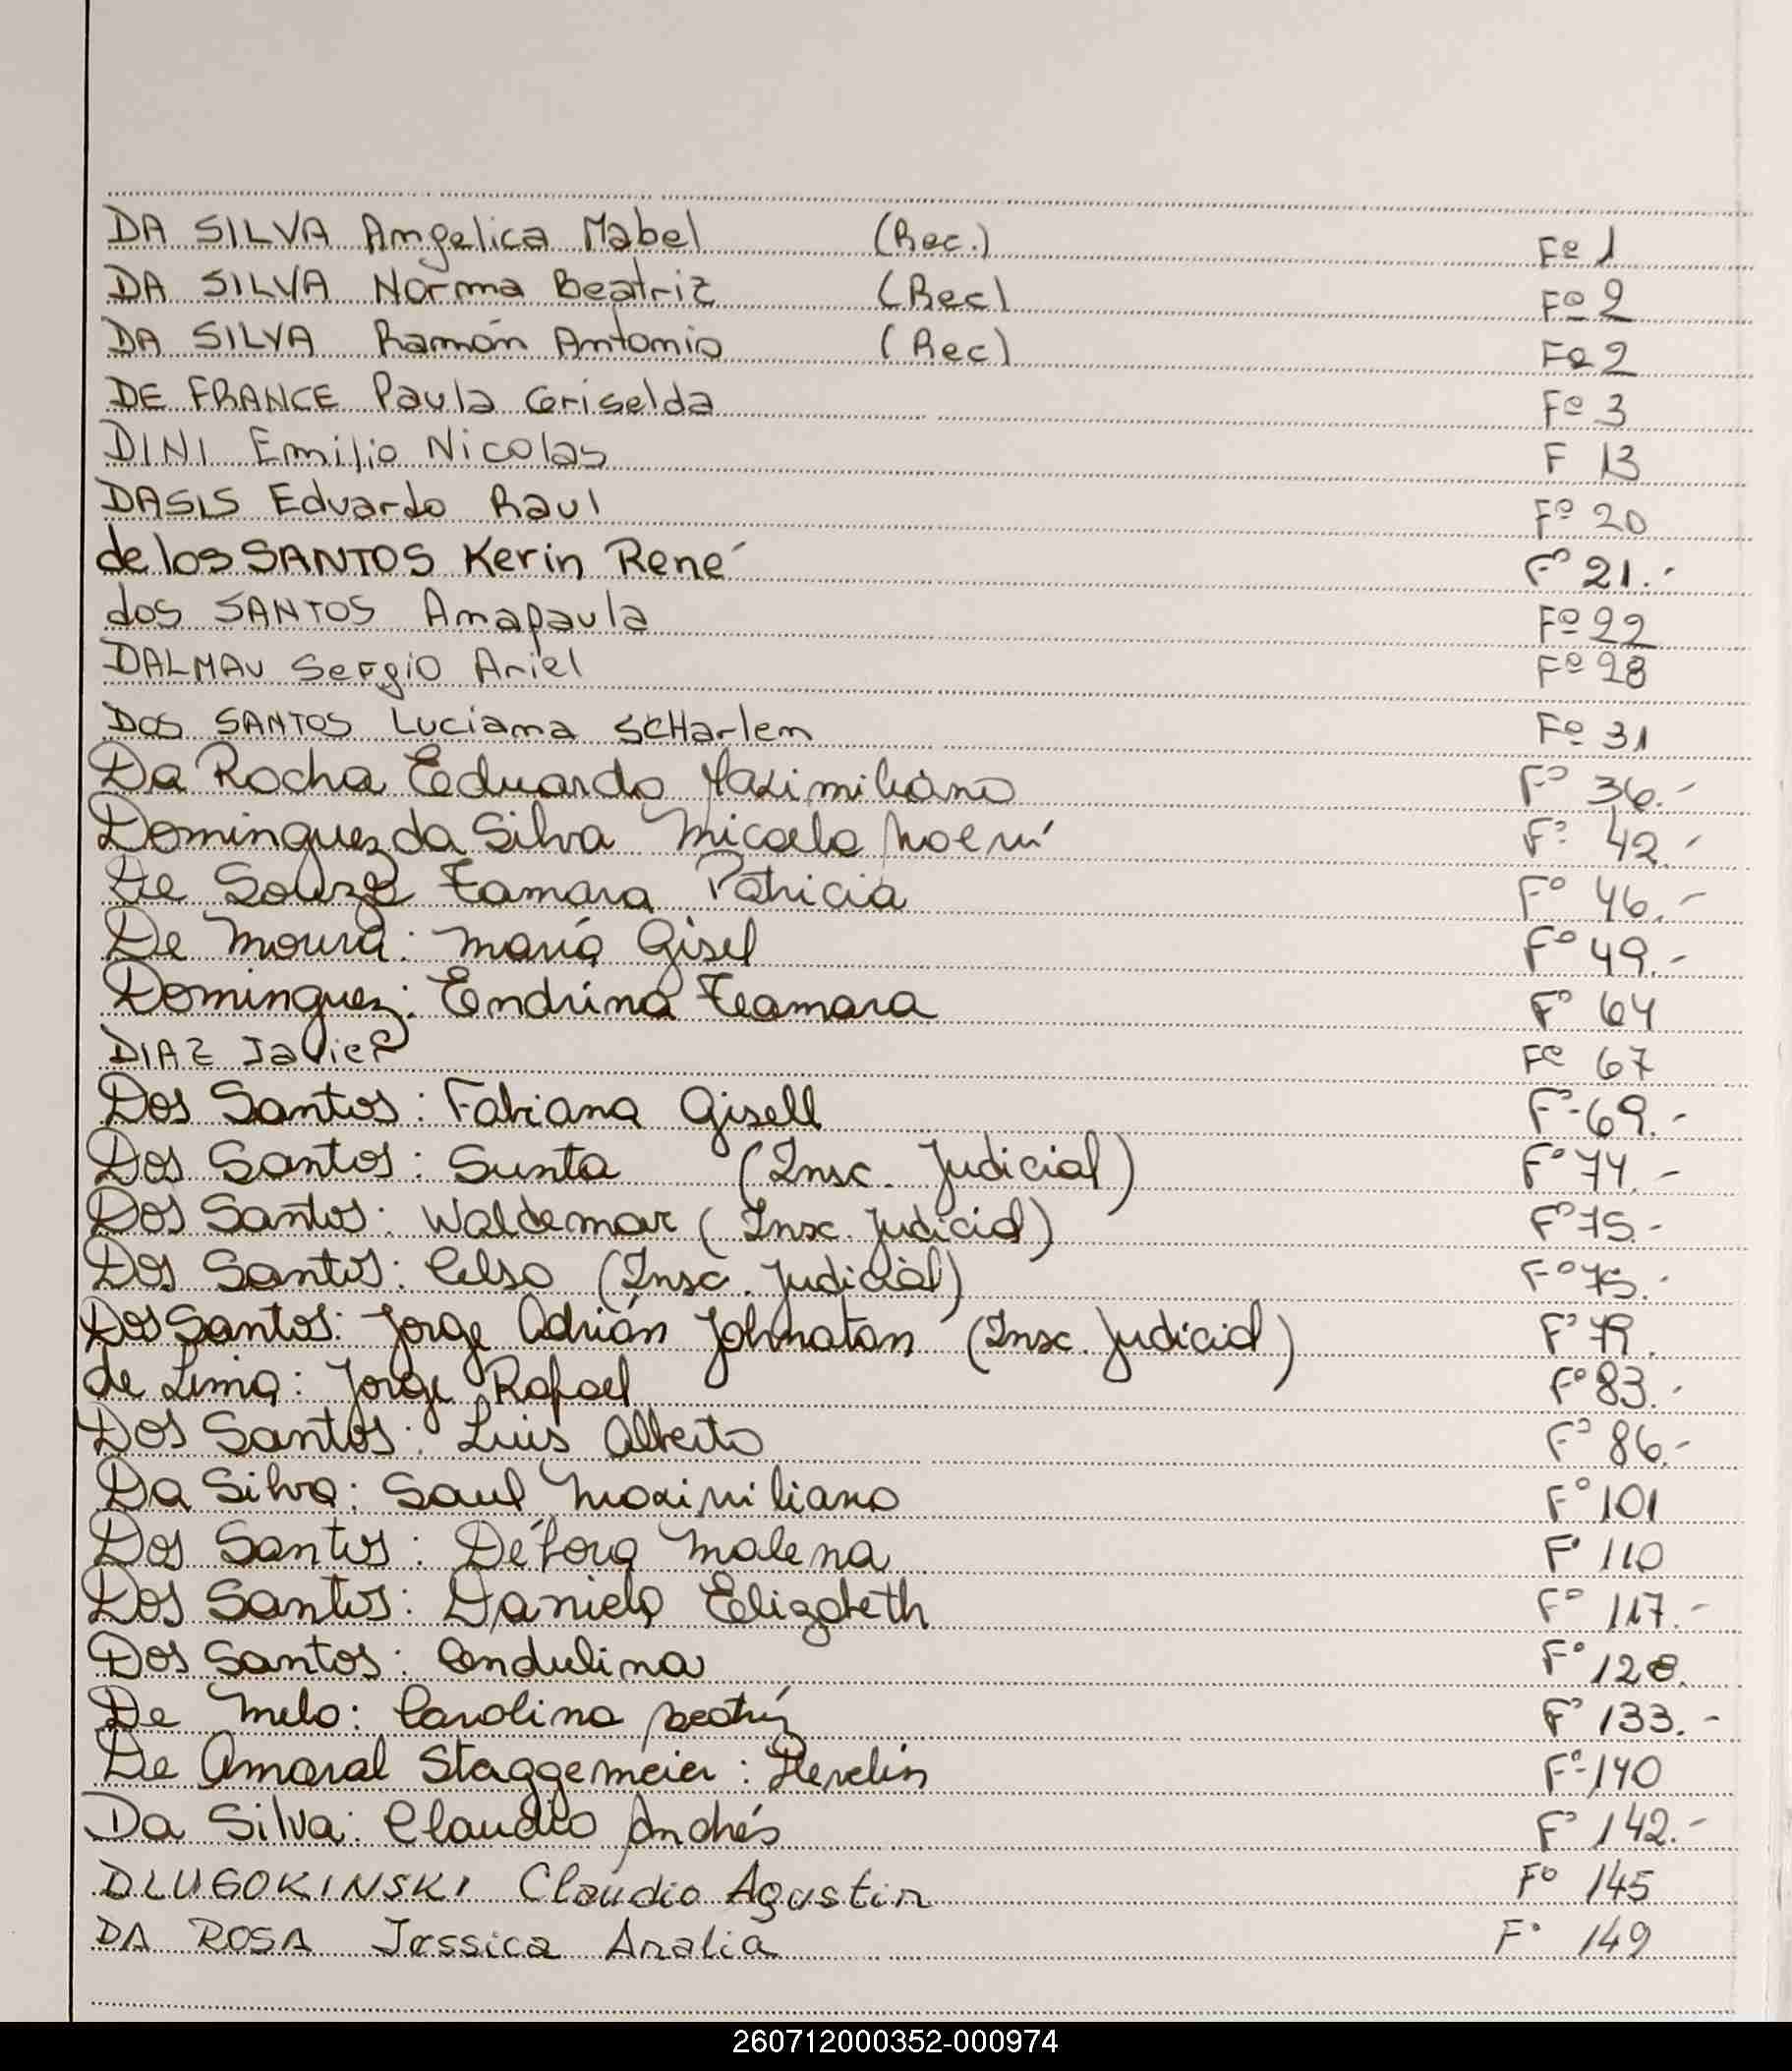 DA SILVA Angelica Mabel (Rec.) Fº 1
DA SILVA Norma Beatriz (Rec) Fº 2
DA SILVA Ramón Antonio (Rec) Fº 2
DE FRANCE Paula Griselda Fº 3
DINI Emilio Nicolas F 13
DASIS Eduardo Raul Fº 20
de los SANTOS Kerin René Fº 21.-
dos SANTOS Anapaula Fº 22
DALMAU Sergio Ariel Fº 28
DOS SANTOS Luciana SCHarlen Fº 31
Da Rocha Eduardo Maximiliano Fº 36.-
Dominguez da Silva Micaela Noemí Fº 42.-
De Souza Tamara Patricia Fº 46.-
De Moura: María Gisel Fº 49.-
Dominguez: Endrina Teamara Fº 64
DIAZ Javier Fº 67
Dos Santos: Fabiana Gisell Fº 69.-
Dos Santos: Sunta (Insc. Judicial) Fº 74.-
Dos Santos: Waldemar (Insc. Judicial) Fº 75.-
Dos Santos: Celso (Insc. Judicial) Fº 75.-
Dos Santos: Jorge Adrián Johnatan (Insc. Judicial) Fº 79.
de Lima: Jorge Rafael Fº 83.-
Dos Santos: Luis Alberto Fº 86.-
Da Silva: Saul Maximiliano Fº 101
Dos Santos: Débora Malena Fº 110
Dos Santos: Daniela Elizabeth Fº 117.-
Dos Santos: Endulina Fº 128.
De Melo: Carolina Beatríz Fº 133.-
De Amaral Staggemeier: Hevelin Fº 140
Da Silva: Claudio Andrés Fº 142.-
DLUGOKINSKI Claudio Agustin Fº 145
DA ROSA Jessica Analia Fº 149
260712000352-000974